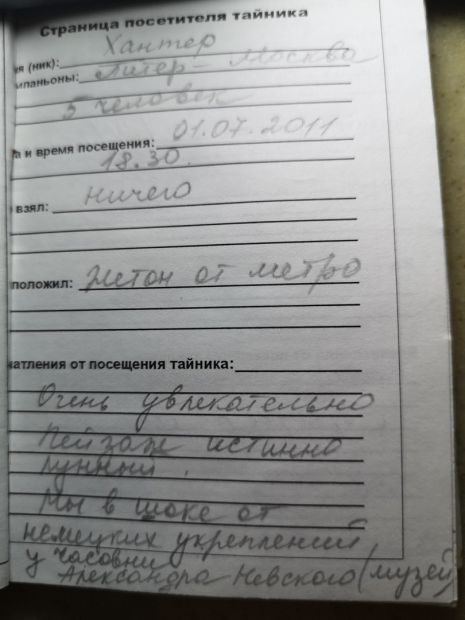 Страница посетителя тайника
ия (ник): Хантер
мпаньоны: Питер - Москва
5 человек
а и время посещения: 01.07.2011
18.30.
взял: ничего
положил: Жетон от метро
чатления от посещения тайника:
Очень увлекательно
Пейзаж истинно
лунный.
Мы в шоке от
немецких укреплений
у часовни
Александра Невского (музей)